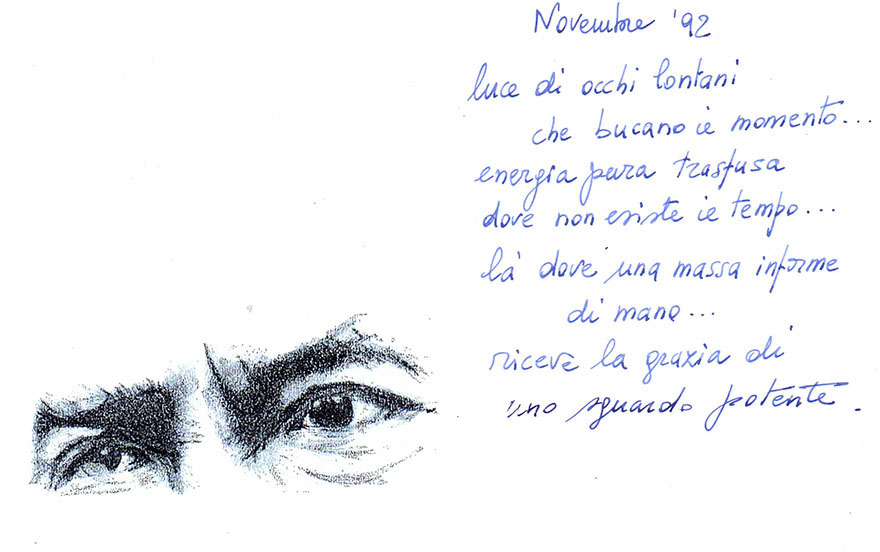 Novembre '92
luce di occhi lontani
che bucano il momento...
energia pura trasfusa
dove non esiste il tempo...
là dove una massa informe
di mano...
riceve la grazia di
uno sguardo potente.